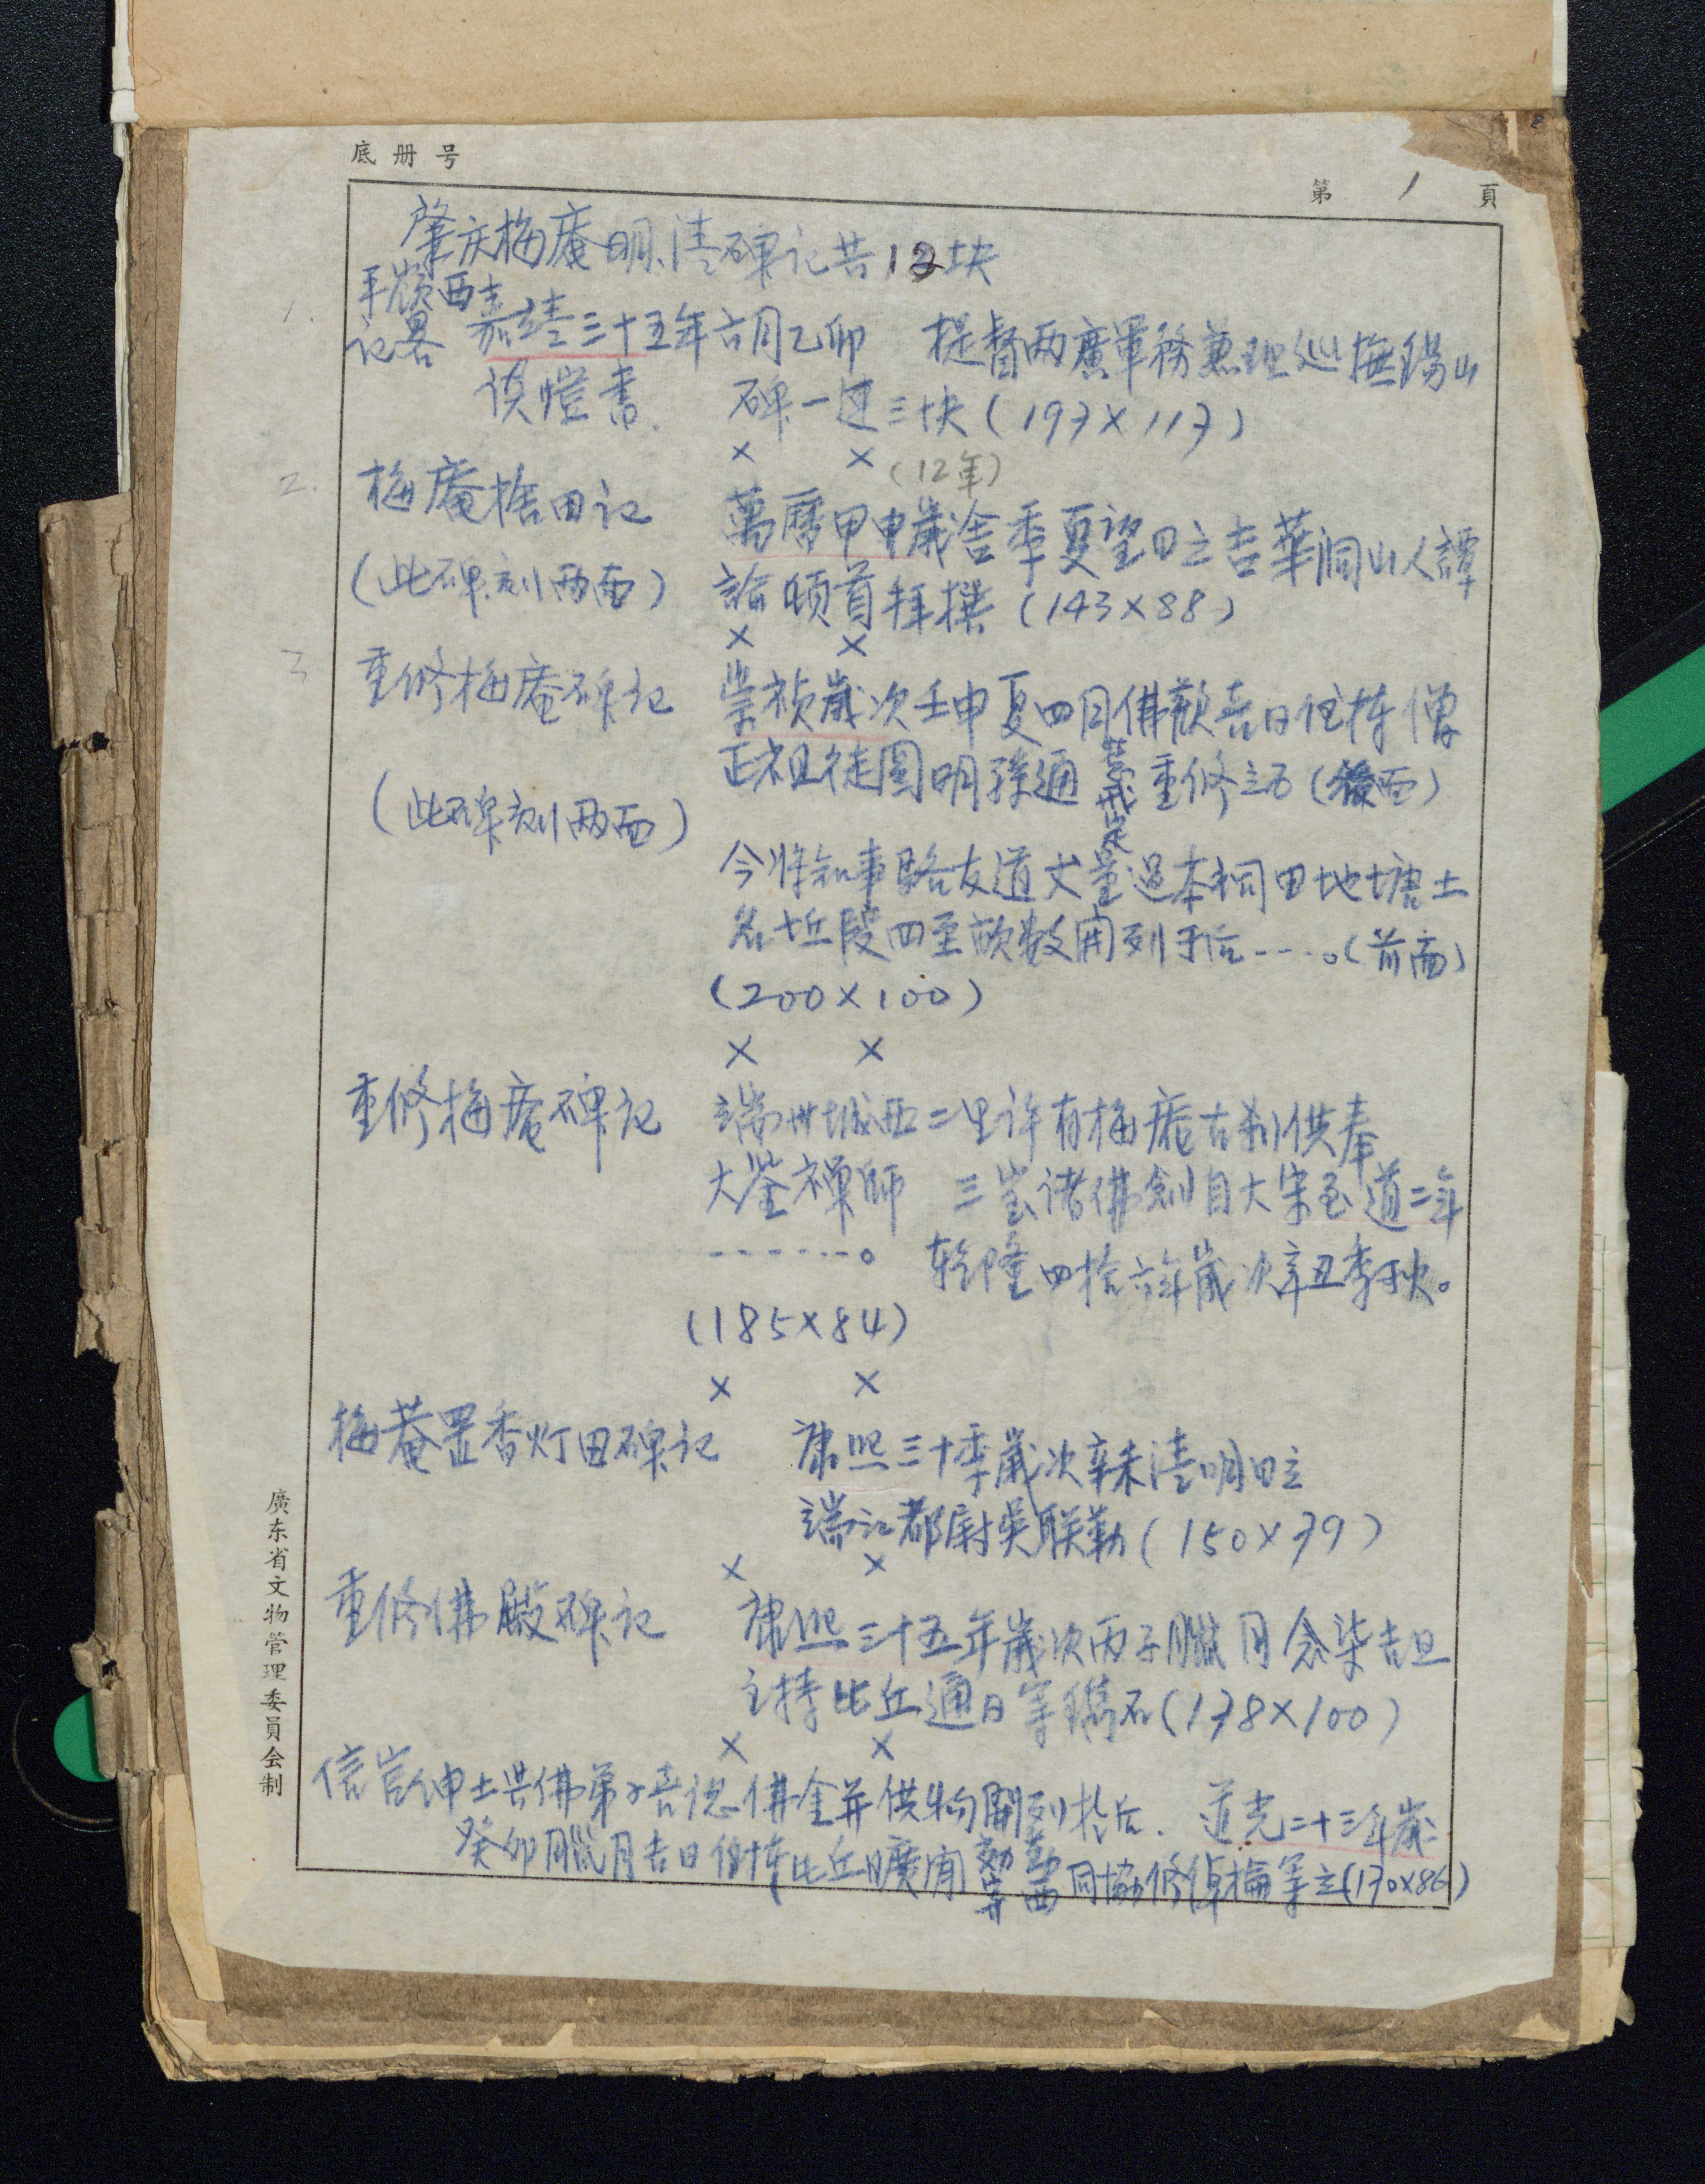 底册号
第 1 頁
肇庆梅庵明.清碑记共12块
1.
平嶺西
记畧
嘉靖三十五年六月乙卯 提督两廣軍務兼理巡撫錫山
谈愷書. 碑一边三块(197×117)
× ×
(12年)
2.
梅庵捨田记 萬曆甲申歲舍季夏望日立吉華洞山人譚
(此碑刻两面) 諭頓首拜撰 (143×88)
× ×
3
重修梅庵碑记 崇祯歲次壬申夏四月佛歡喜日住持僧
正祖徒圓明孫通 慧戒定 重修立石(後面)
(此碑刻两面)
今将知事路友道丈量過本祠田地塘土
名坵段四至畝数開列于后----。(前面)
(200×100)
× ×
重修梅庵碑记 端州城西二里许有梅庵古刹供奉
大鉴禅師 三宝诸佛創自大宋至道二年
------。 乾隆四拾六年歲次辛丑季秋。
(185×84)
× ×
梅菴置香灯田碑记 康熙三十季歲次辛未清明日立
端江都尉吳联勤(150×79)
× ×
重修佛殿碑记 康熙三十五年歲次丙子臘月念柒吉旦
主持比丘通日等鐫石(178×100)
× ×
信官绅士共佛弟子喜
佛金并供物開列於后. 道光二十三年歲
癸卯臘月吉日住持比丘曠闲
同協修倬楄等立(170×86)
廣东省文物管理委員会制